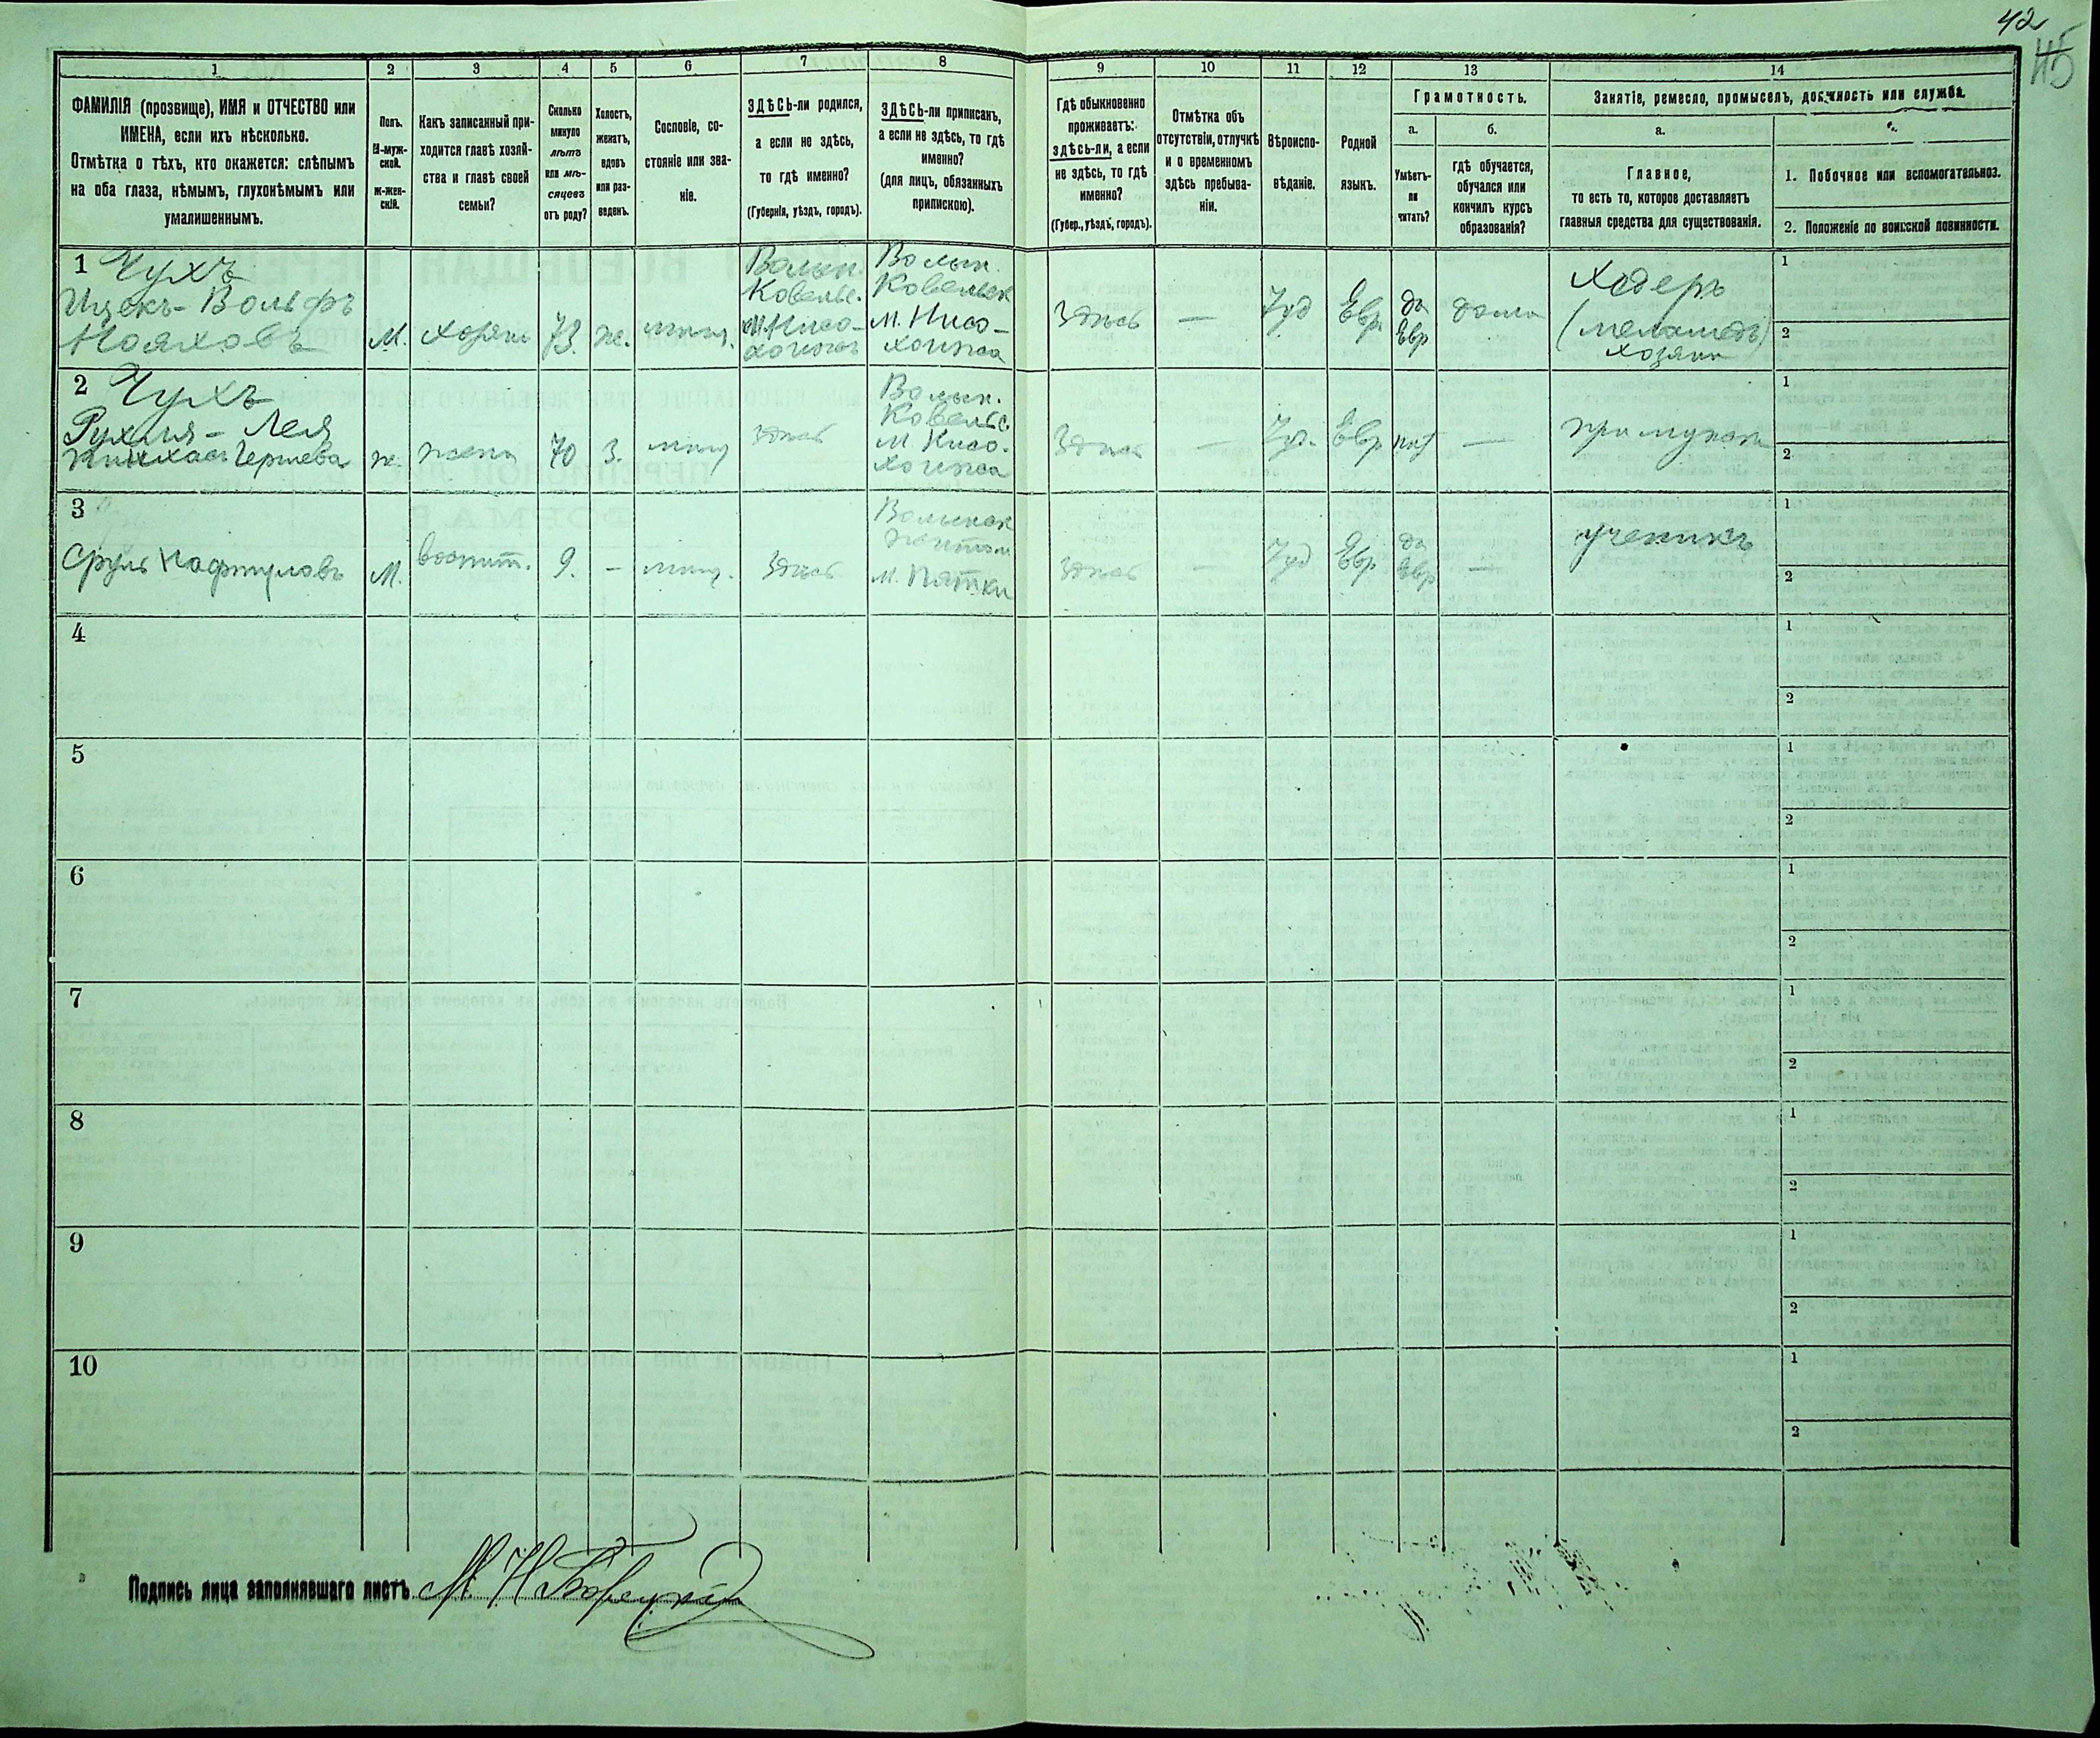 42
45
1 2 3 4 5 6 7 8 9 10 11 12 13 14
ФАМИЛІЯ (прозвище), ИМЯ и ОТЧЕСТВО или
ИМЕНА, если ихъ нѣсколько.
Отмѣтка о тѣхъ, кто окажется: слѣпымъ
на оба глаза, нѣмымъ, глухонѣмымъ или
умалишеннымъ.
Полъ.
М-муж-
ской.
ж-жен-
скій.
Какъ записанный при-
ходится главѣ хозяй-
ства и главѣ своей
семьи?
Сколько
минуло
лѣтъ
или мѣ-
сяцевъ
отъ роду?
Холостъ,
женатъ,
вдовъ
или раз-
веденъ.
Сословіе, со-
стояніе или зва-
ніе.
ЗДѢСЬ-ли родился,
а если не здѣсь,
то гдѣ именно?
(Губернія, уѣздъ, городъ).
ЗДѢСЬ-ли приписанъ,
а если не здѣсь, то гдѣ
именно?
(для лицъ, обязанныхъ
припискою).
Гдѣ обыкновенно
проживаетъ:
здѣсь-ли, а если
не здѣсь, то гдѣ
именно?
(Губер., уѣздъ, городъ).
Отмѣтка объ
отсутствіи, отлучкѣ
и о временномъ
здѣсь пребыва-
ніи.
Вѣроиспо-
вѣданіе.
Родной
языкъ.
Грамотность.
а.
Умѣетъ-
ли
читать?
б.
гдѣ обучается,
обучался или
кончилъ курсъ
образованія?
Занятіе, ремесло, промыселъ, должность или служба.
а.
Главное,
то есть то, которое доставляетъ
главныя средства для существованія.
1. Побочное или вспомогательное.
2. Положеніе по воинской повинности.
1 Чухъ
Ицекъ-Вольфъ
Нояховъ
М.
хозяин
73
ж.
мѣщ.
Волын.
Ковельс.
Волын.
Ковельск
м.
Здѣсь
—
Іуд
Евр.
да
Евр
дома
Хедеръ
(меламедъ)
хозяин
1
2
2 Чухъ
Рухля-Лея
ж.
жена
70
З.
мѣщ
здѣсь
Волын.
Ковельс.
м.
Здѣсь
—
Іуд.
Евр
нѣт
—
при мужѣ
1
2
3
Сруль Нафтуловъ
М.
воспит.
9.
—
мѣщ.
Здѣсь
Волынск
Житом
м. Пятки
Здѣсь
—
Іуд
Евр
да
Евр
—
ученикъ
1
2
4
1
2
5
1
2
6
1
2
7
1
2
8
1
2
9
1
2
10
1
2
Подпись лица заполнявшаго листъ